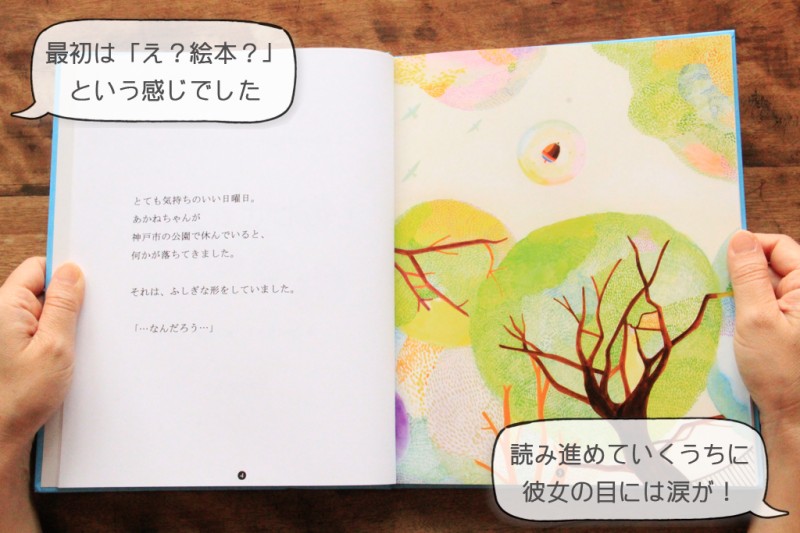 最初は「え？絵本？」
という感じでした
とても気持ちのいい日曜日。
あかねちゃんが
神戸市の公園で休んでいると、
何かが落ちてきました。
それは、ふしぎな形をしていました。
「…なんだろう…」
4
読み進めていくうちに
彼女の目には涙が！